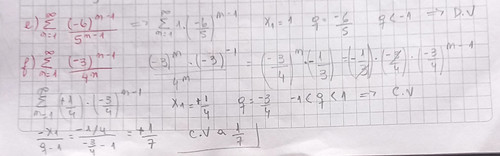 e) ∑_{n=1}^{∞} (-6)^{n-1} / 5^{n-1} => ∑_{n=1}^{∞} 1 · (-6/5)^{n-1} x₁ = 1 q = -6/5 q < -1 => D.V
f) ∑_{n=1}^{∞} (-3)^{n-1} / 4^n (-3)^n / 4^n · (-3)^{-1} = (-3/4)^n · (-1/3) = (-1/3) · (-3/4) · (-3/4)^{n-1}
∑_{n=1}^{∞} +1/4 · (-3/4)^{n-1} x₁ = +1/4 q = -3/4 -1 < q < 1 => C.V
-x₁ / q-1 = -1/4 / -3/4 - 1 = +1/7 C.V a 1/7